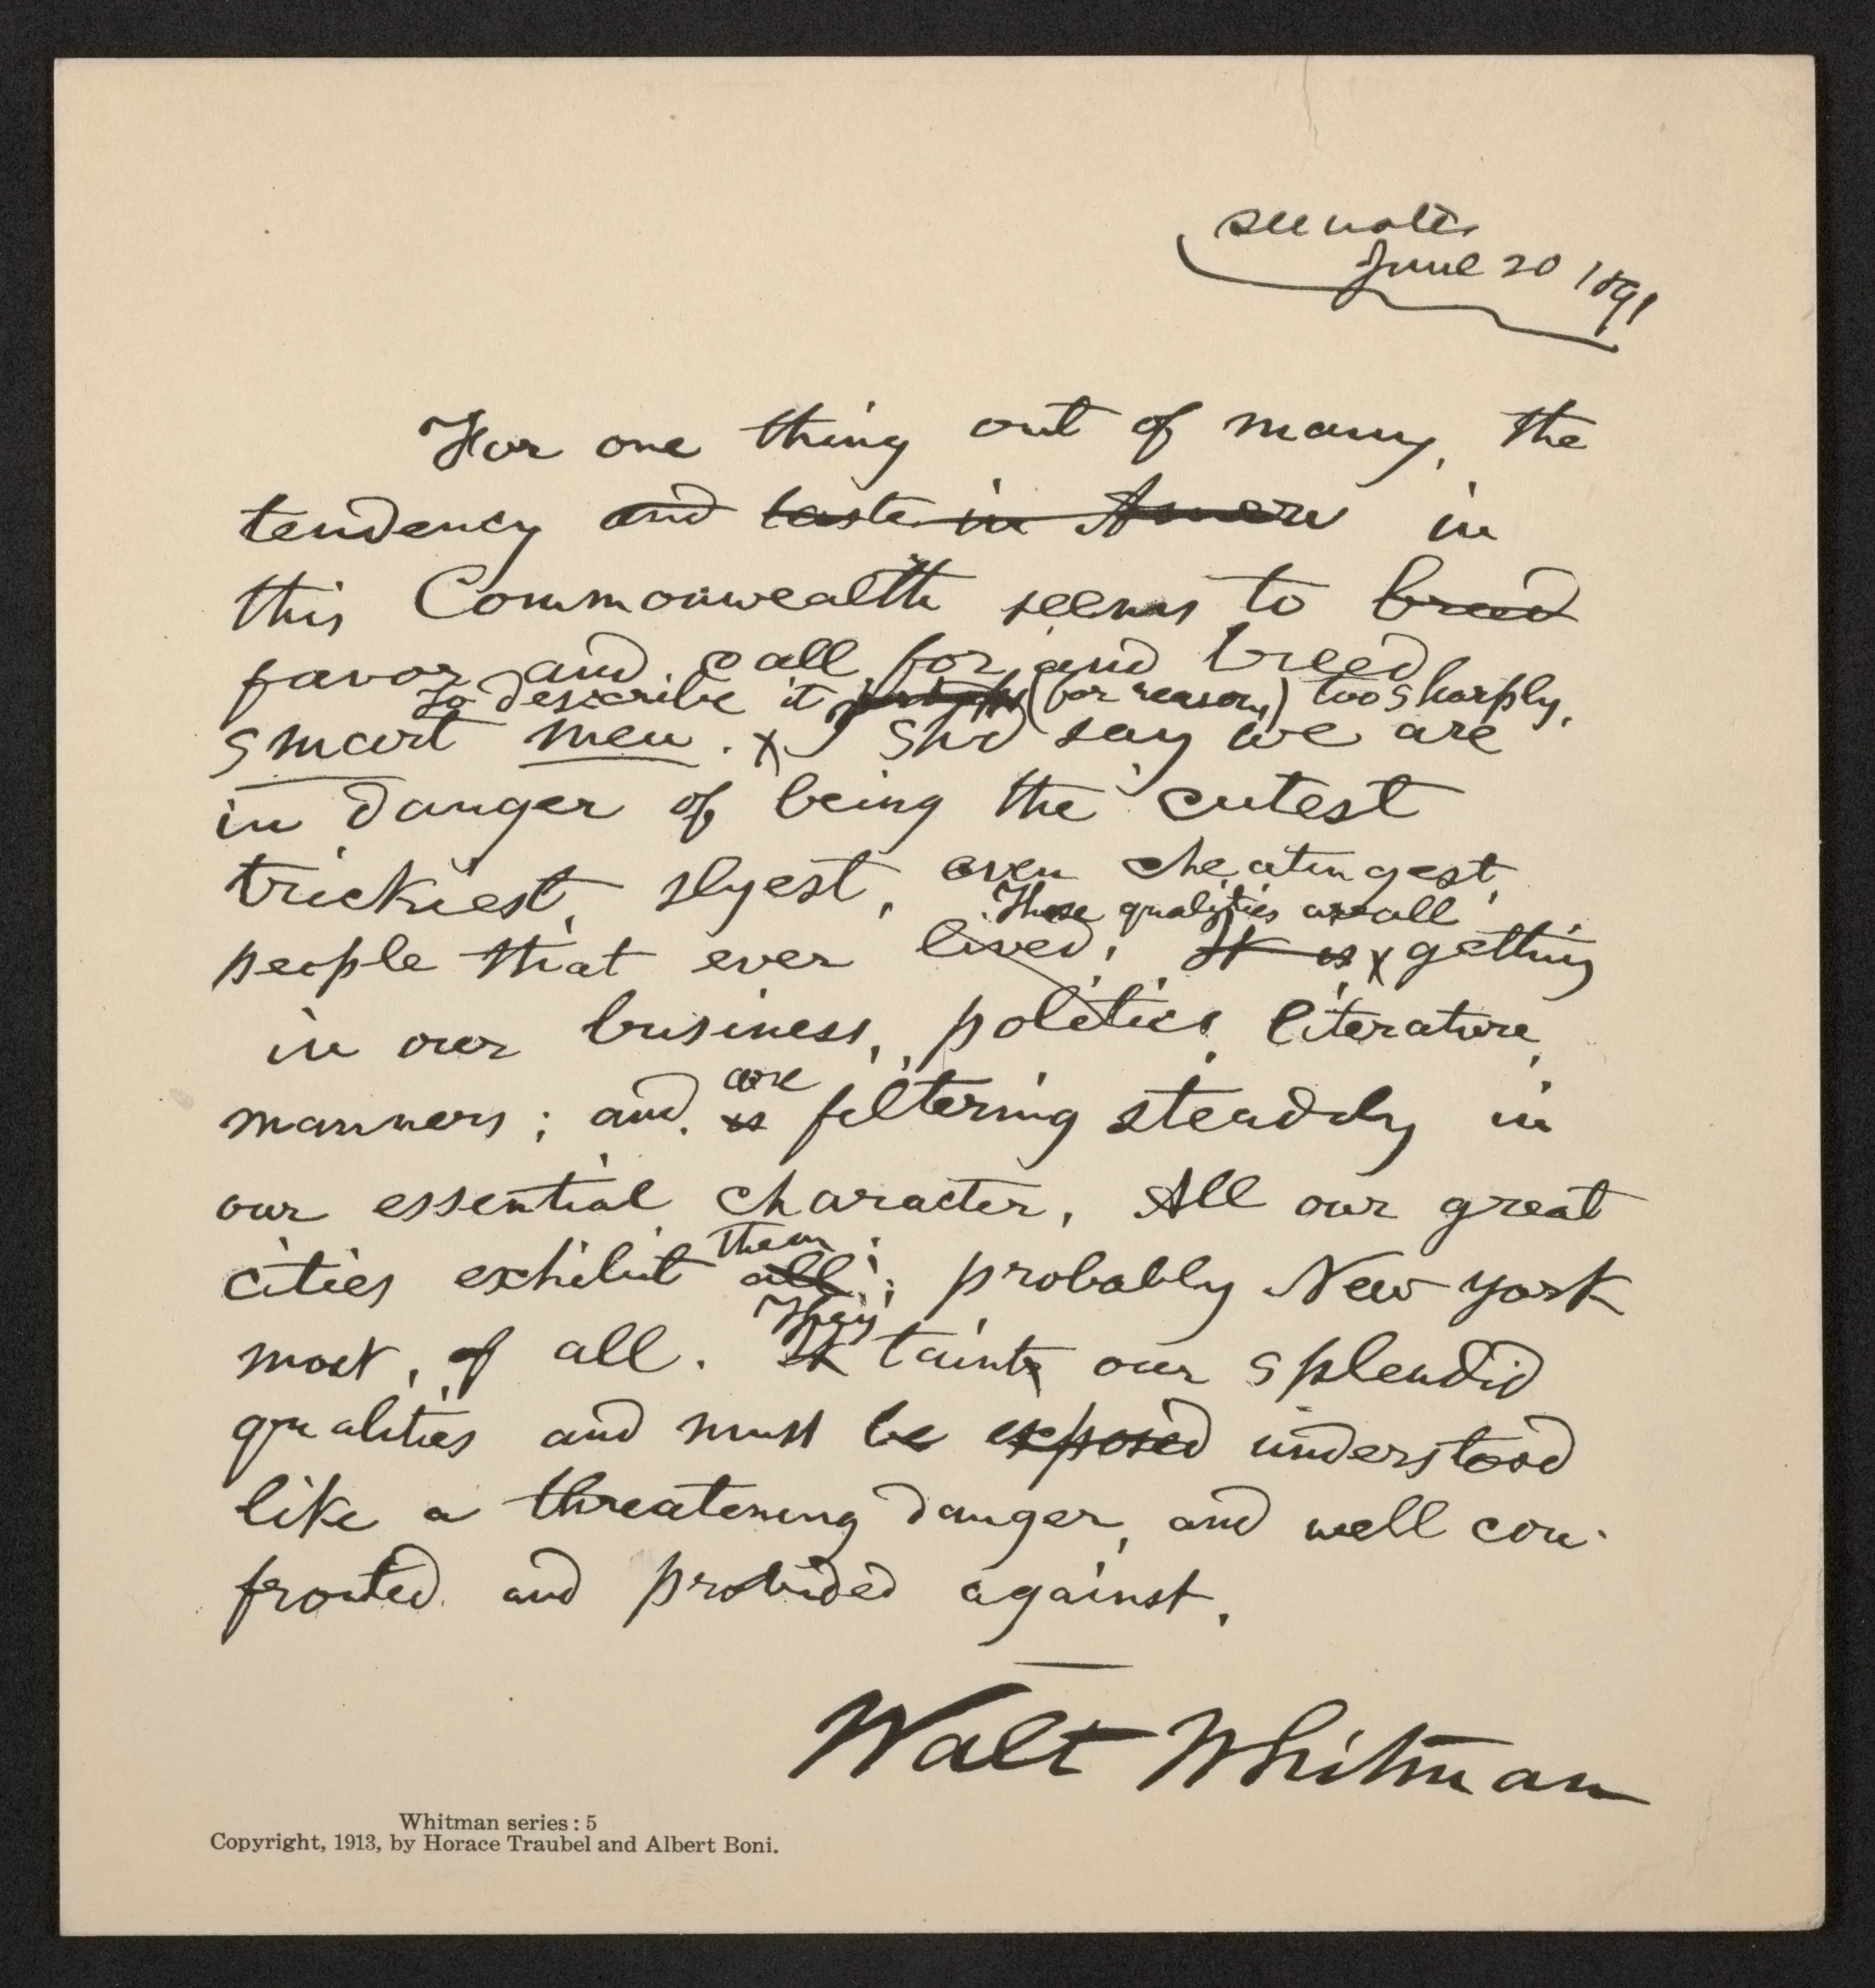 see notes
June 20 1891
For one thing out of many, the
tendency and taste in Amer in
this Commonwealth seems to breed
favor and call for and breed
To describe it (for reason,) too sharply,
smart men. x I shd say we are
in danger of being the 'cutest
trickiest, slyest, even cheatingest,
These qualities are all
people that ever lived; It is x getting
in our business, politics, literature,
manners; and is filtering steadily in
are
our essential character. All our great
them
cities exhibit all; probably New York
They
most, of all. It taints our splendid
qualities and must be exposed understood
like a threatening danger, and well con-
fronted and provided against.
Walt Whitman
Whitman series: 5
Copyright, 1913, by Horace Traubel and Albert Boni.